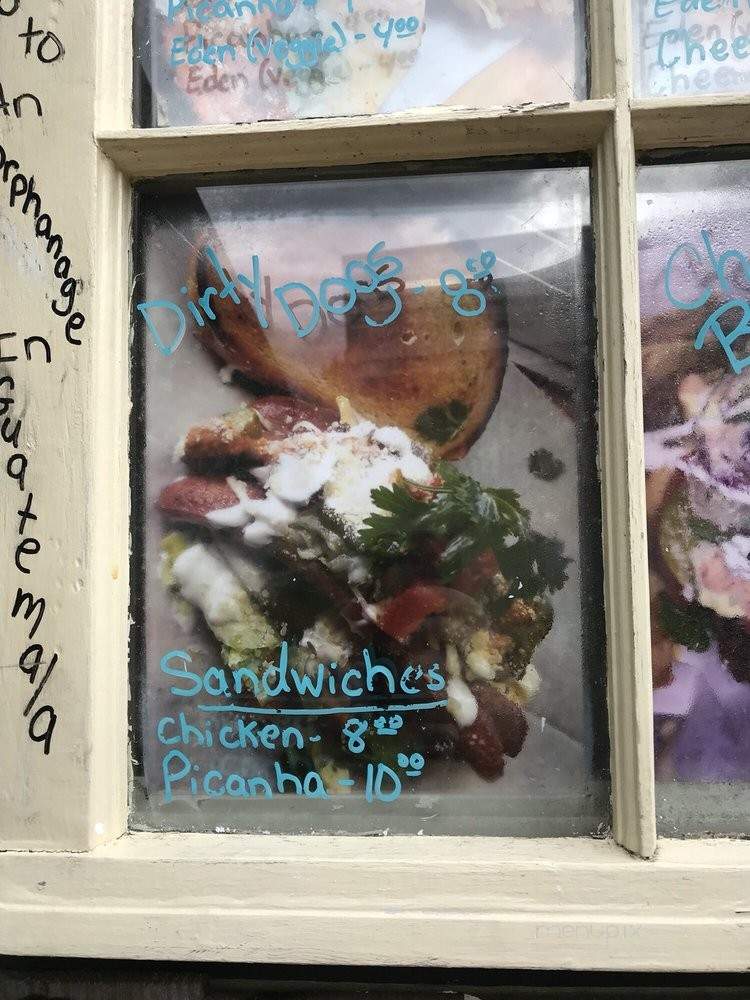 to
An
orphanage
In
Guatemala
Picanha -
Eden (veggie) - 4.00
Eden
Chee
Dirty Dogs - 8.00
Ch
B
Sandwiches
Chicken - 8.00
Picanha - 10.00
menupix